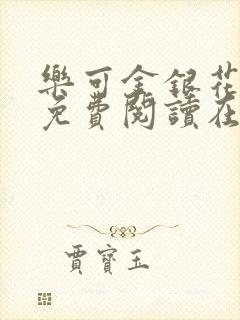 樂可金銀花
免費閱讀在
賈寶玉